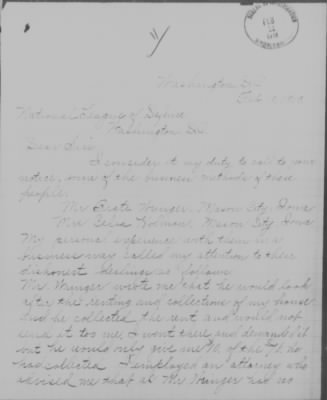 11
FEB
Washington D.C.
Feb.
National League of Defense
Washington D.C.
Dear Sirs
I consider it my duty to call to your
notice some of the business methods of these
people.
Mr Wringer, Mason City, Iowa
Mrs Mason City, Iowa
My personal experience with them in a
business way called my attention to their
dishonest dealings as follows
Mr. Wringer wrote me that he would look
after the renting and collections of my house
and he collected the rent and would not
send it too me. I went there and demanded it
but he would only give me of the he
has collected I employed an attorney who
advised me that as Mr Wringer had no